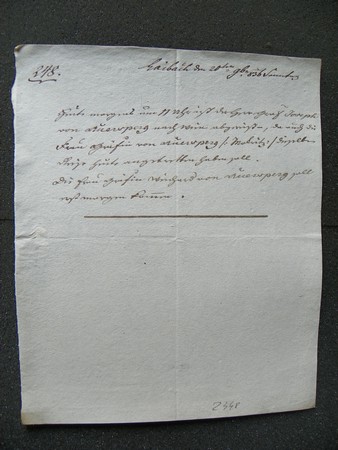 248.
Laibach den 20ten 9b: 836
Heute morgens um 11 Uhr ist der Herr Graf Joseph
von Auersperg nach Wien abgereist, auch die
Frau Gräfin von Auersperg
Reise heute angetretten haben soll.
Die Frau Gräfin von Auersperg soll
erst morgen kommen.
2448